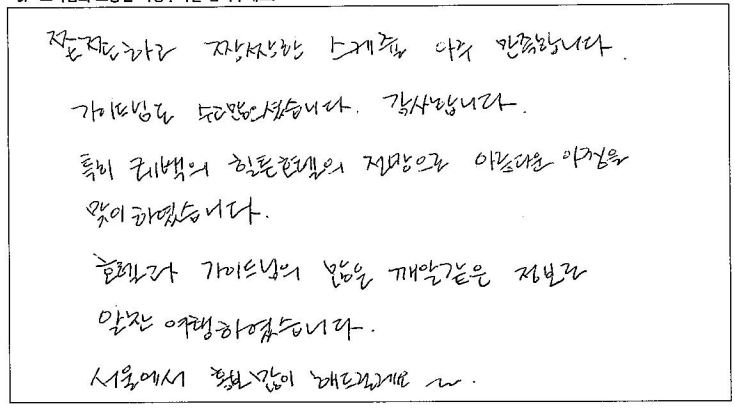 쫀쫀하고 짭짭한 스케쥴 아주 만족합니다.
가이드님도 수고많으셨습니다. 감사합니다.
특히 퀘백의 힐튼호텔의 전망으로 아름다운 아침을
맞이하였습니다.
호텔과 가이드님의 많은 깨알같은 정보로
알찬 여행하였습니다.
서울에서 홍보많이 해드릴게요 ~.